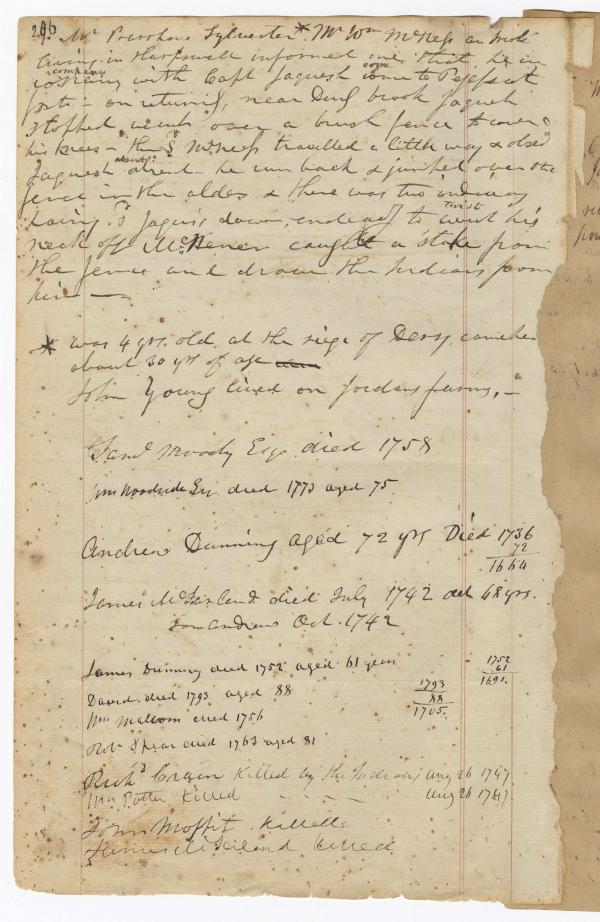 206
Mr Barsham Sylvester * Mr Wm McNess an Irish
living in Harpswell informed me that he in
company
with Capt Jaquesh come to Pejepscot
fort - on returning, near Dung brook Jaquesh
stopped went over a brush fence to cover
his knees - the Sd McNess travelled a little way & obsd
Jaquesh absent he run back & jumped over the
fence in the alders & there was two indians
having Sd Jaquis down, endeavg to twist his
neck off McNess caught a stake from
the fence and drove the Indians from
him —
* was 4 yrs. old at the siege of Derry, came here
about 30 yrs of age
John Young lived on Jordans farms, —
Saml Moody Esq. died 1758
Wm Woodside Esq. died 1773 aged 75
Andrew Dunning aged 72 yrs Died 1736
72
1664
James McFarland died July 1742 aet 48 yrs.
son Andrew Oct. 1742
James Dunning died 1752 aged 61 years
1752
61
1691.
David. died 1793 aged 88
1793
88
1705.
Wm Malcom died 1756
Robt Spear died 1763 aged 81
Richd Crain Killed by the Indians Aug 26 1747
Wm Potter Killed - - - Aug 26 1747
John Moffit Killed
James McFarland Killed